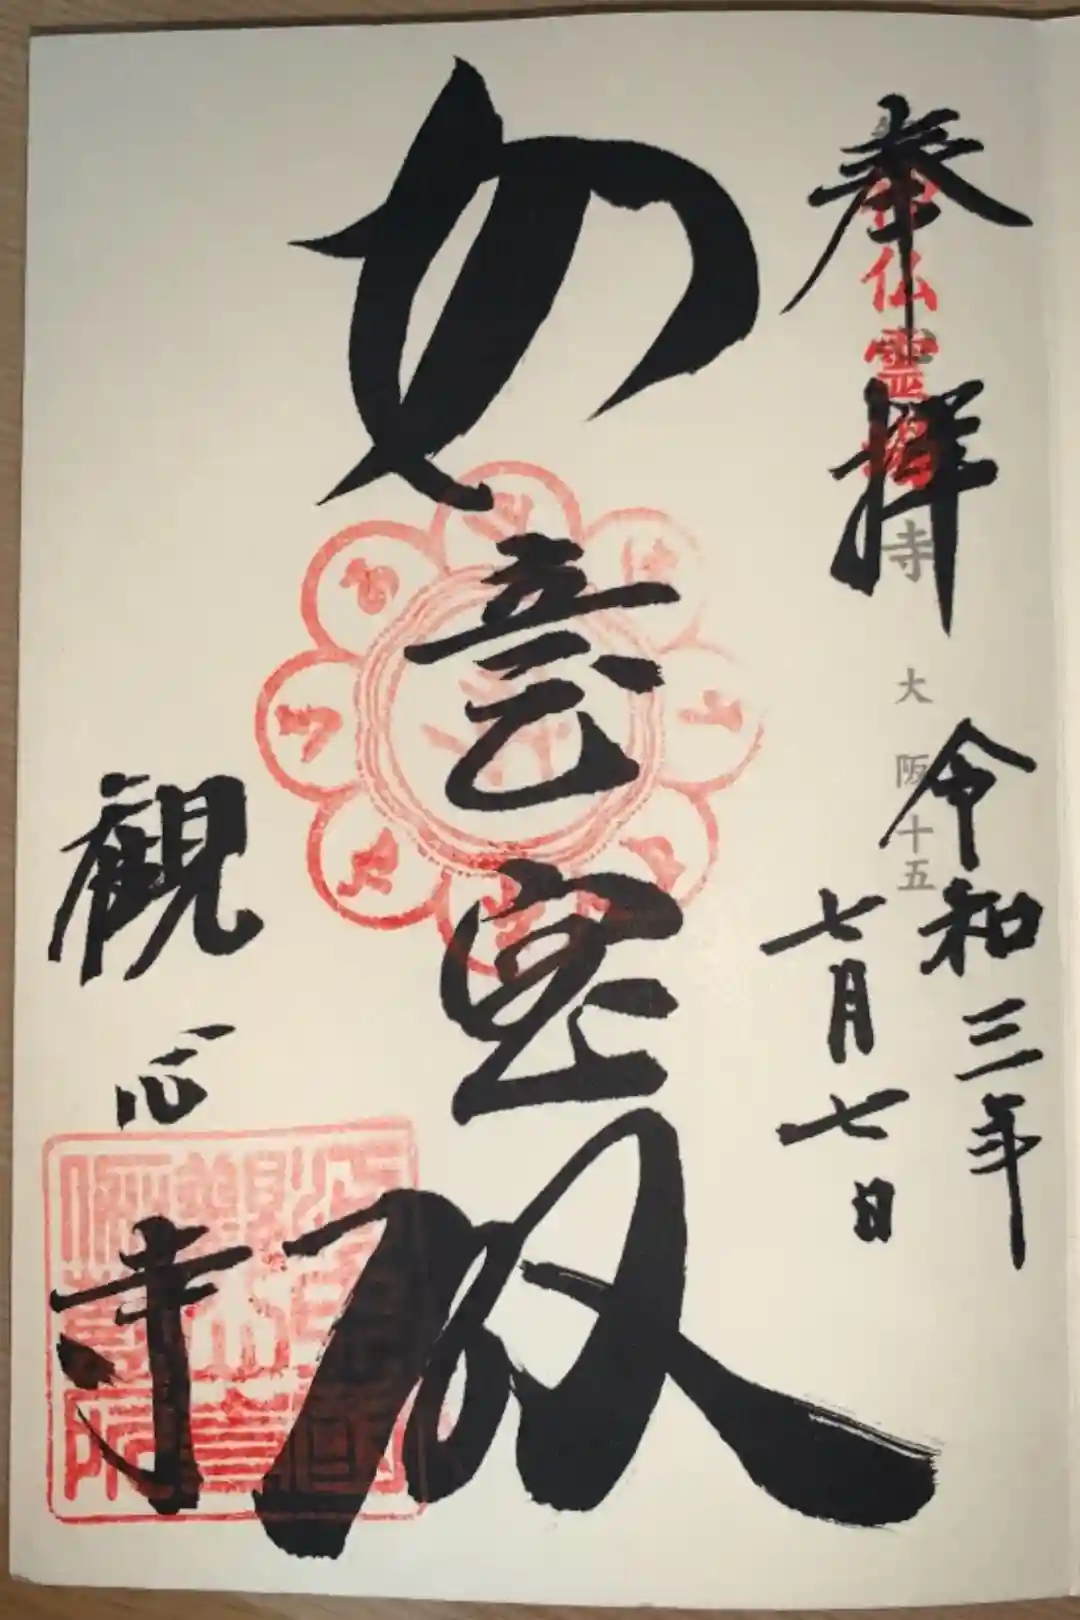 奉拝
仏霊場
寺 大阪十五
令和三年
七月七日
如意宝殿
観心寺